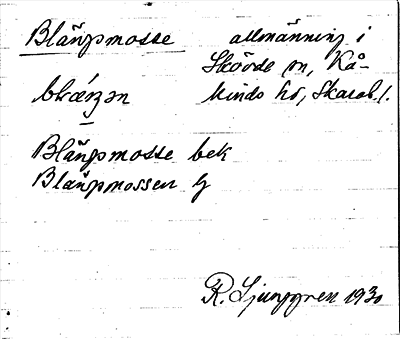 Blängsmosse allmänning i
Skövde sn, Kå-
kinds hd, Skarab. l.
Blängsmosse bek
Blängsmossen
R. Ljunggren 1930